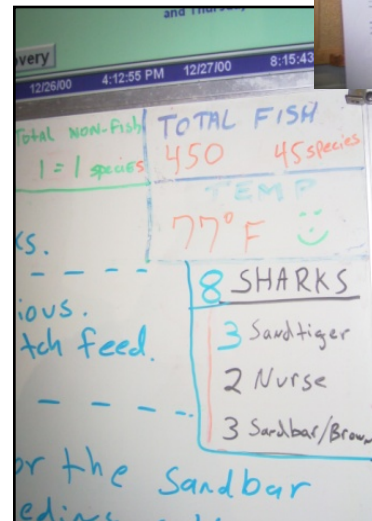 and Thursday
overy
12/26/00 4:12:55 PM 12/27/00 8:15:43
Total NON-Fish
1 = 1 species
TOTAL FISH
450 45 species
TEMP
77° F
ks.
ious.
tch feed.
8 SHARKS
3 Sandtiger
2 Nurse
3 Sandbar/Brown
or the Sandbar